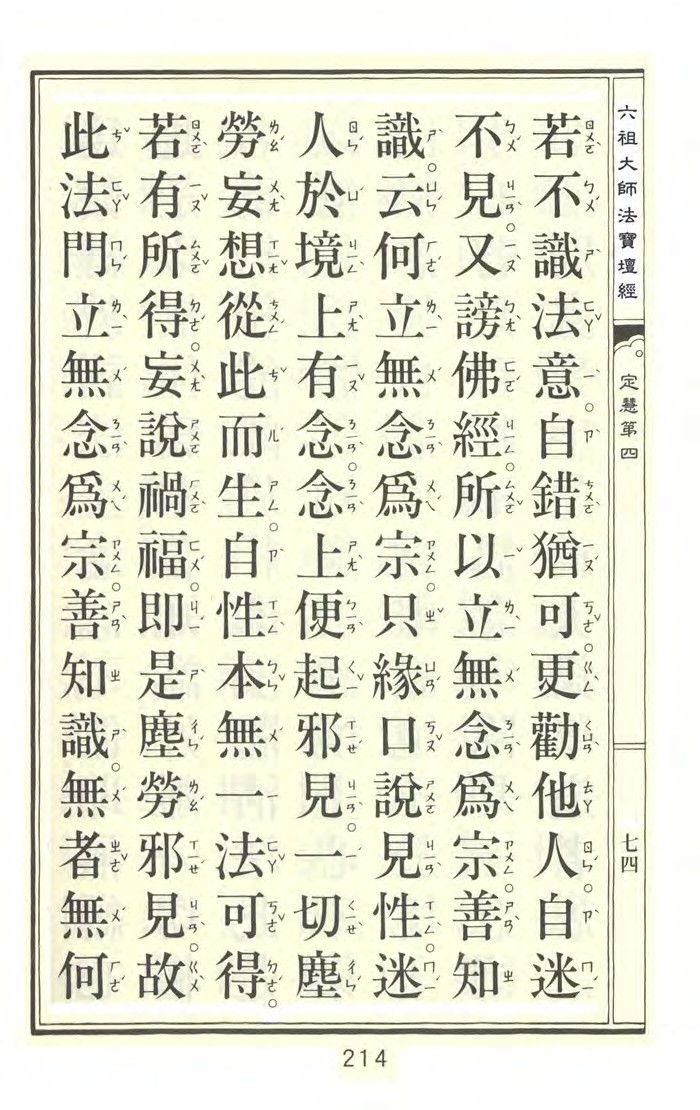 六祖大師法寶壇經
定慧第四
七四
若不識法意。自錯猶可。更勸他人。自迷
不見。又謗佛經。所以立無念爲宗。善知
識。云何立無念爲宗。只緣口說見性。迷
人於境上有念。念上便起邪見。一切塵
勞妄想從此而生。自性本無一法可得。
若有所得。妄說禍福。即是塵勞邪見。故
此法門立無念爲宗。善知識。無者無何
214